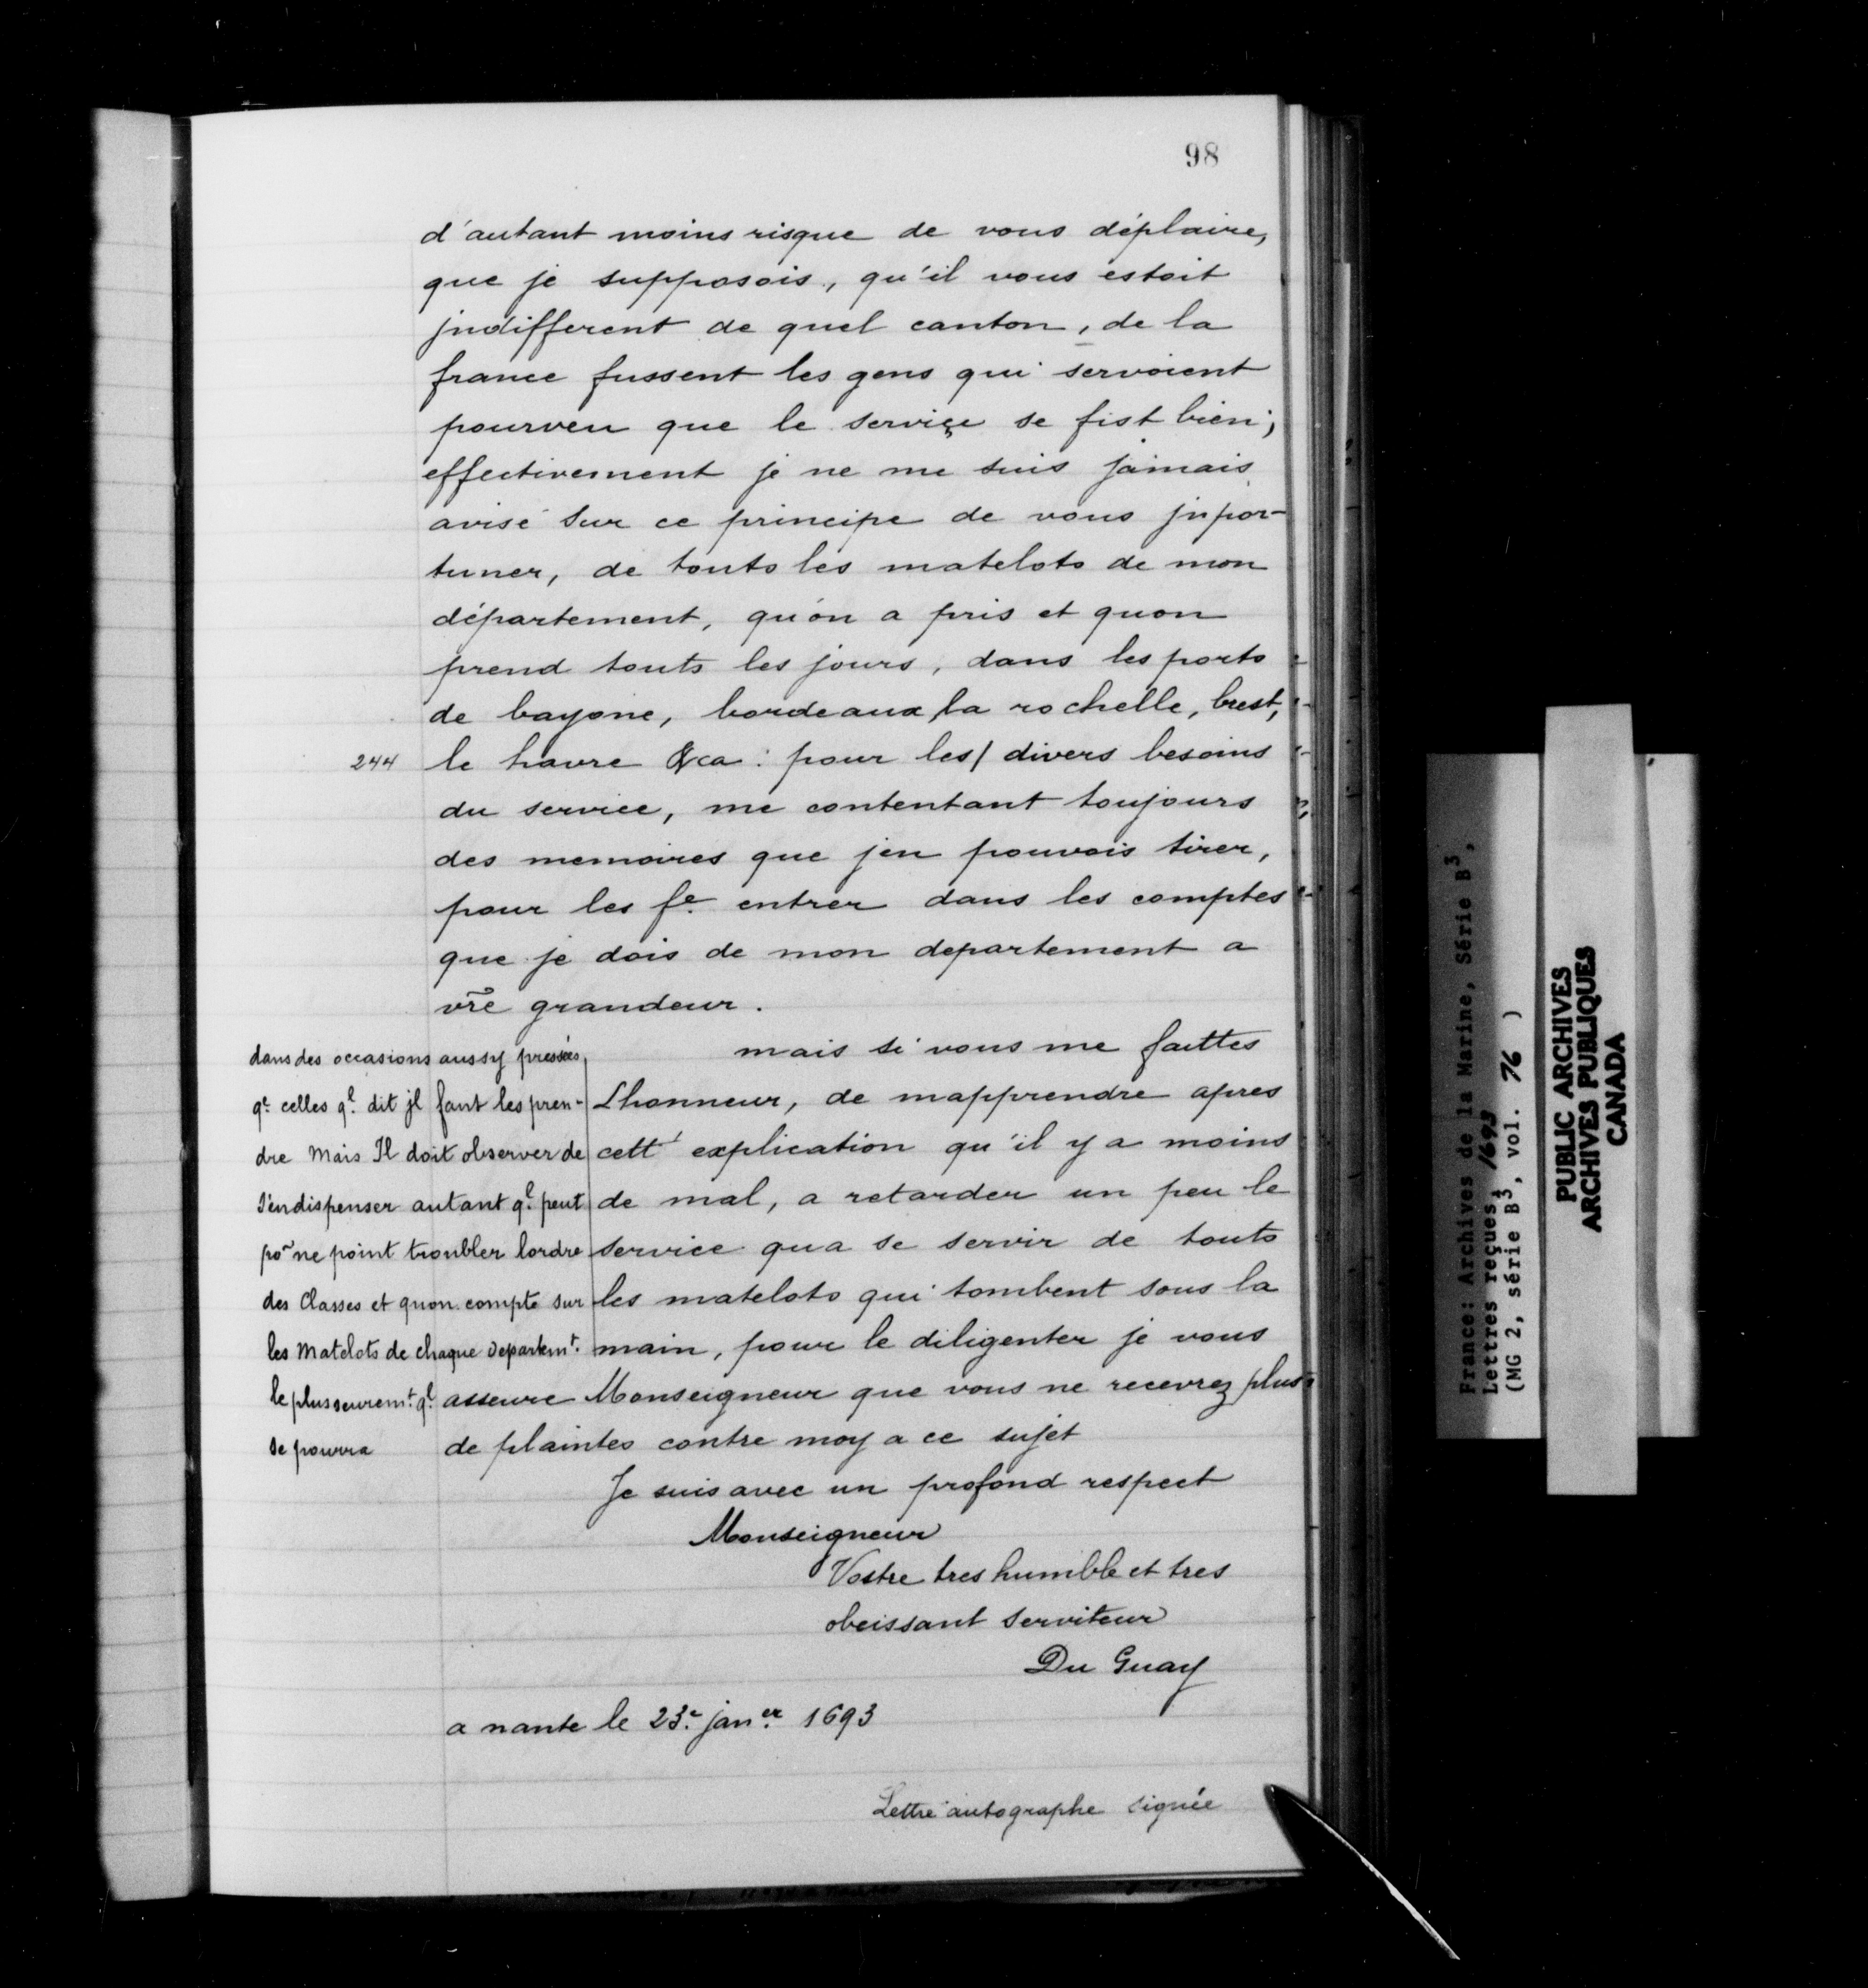 98
d'autant moins risque de vous déplaire,
que je supposois, qu'il vous estoit
jndifferent de quel canton, de la
france fussent les gens qui servoient
pourveu que le serviçe se fist bien;
effectivement je ne me suis jamais
avisé sur ce principe de vous jnpor-
tuner, de touts les matelots de mon
département, qu'on a pris et quon
prend touts les jours, dans les ports
de bayone, bordeaux, la rochelle, brest,
244 le havre &ca: pour les/ divers besoins
du service, me contentant toujours
des memoires que jen pouvois tirer,
pour les fe. entrer dans les comptes
que je dois de mon departement a
vr̃e grandeur.
mais si vous me faittes
Lhonneur, de mapprendre apres
cett' explication qu'il y a moins
de mal, a retarder un peu le
service qu a se servir de touts
les matelots qui tombent sous la
main, pour le diligenter je vous
asseure Monseigneur que vous ne recevrez plus
de plaintes contre moy a ce sujet
dans des occasions aussy pressées,
qe. celles ql. dit jl faut les pren-
dre Mais Il doit observer de
s'endispenser autant ql. peut
por ne point troubler lordre
des Classes et quon compte sur
les Matelots de chaque Departemt.
le plus seuremt. ql.
se pourra
Je suis avec un profond respect
Monseigneur
Vostre tres humble et tres
obeissant serviteur
Du Guay
a nante le 23e. janer. 1693
Lettre autographe signée
France: Archives de la Marine, Série B3,
Lettres reçues, 1693
(MG 2, série B3, vol. 76 )
PUBLIC ARCHIVES
ARCHIVES PUBLIQUES
CANADA